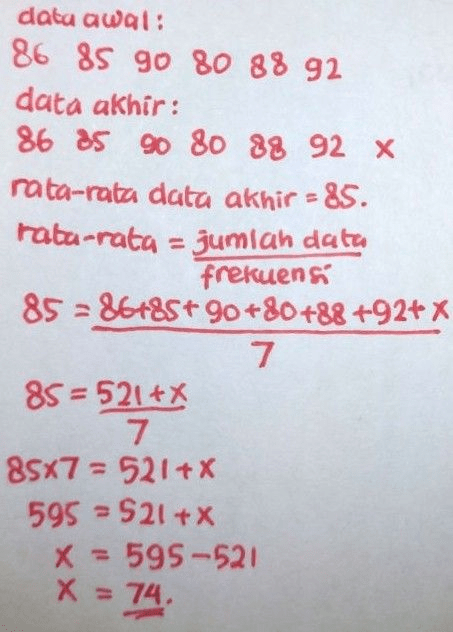 data awal:
86 85 90 80 88 92
data akhir:
86 85 90 80 88 92 x
rata-rata data akhir = 85.
rata-rata = jumlah data
frekuensi
85 = 86+85+90+80+88+92+x
7
85 = 521+x
7
85x7 = 521+x
595 = 521+x
x = 595-521
x = 74.